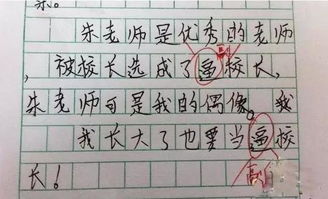 象。
朱老师是优秀的老师
，被校长选成了逼校长，
朱老师可是我的偶像。我
我长大了也要当逼校
长！
副